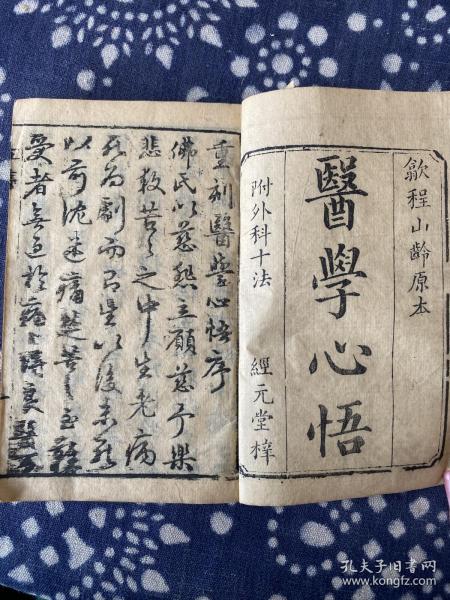 歙程山齡原本
醫學心悟
附外科十法 經元堂梓
重刻醫學心悟序
佛氏以慈愍立願慈予樂
悲救苦苦之中生老病
死為劇而有生以後未死
以前沈迷痛楚苦之至難
受者無過於病病得良醫
孔夫子旧书网
www.kongfz.com